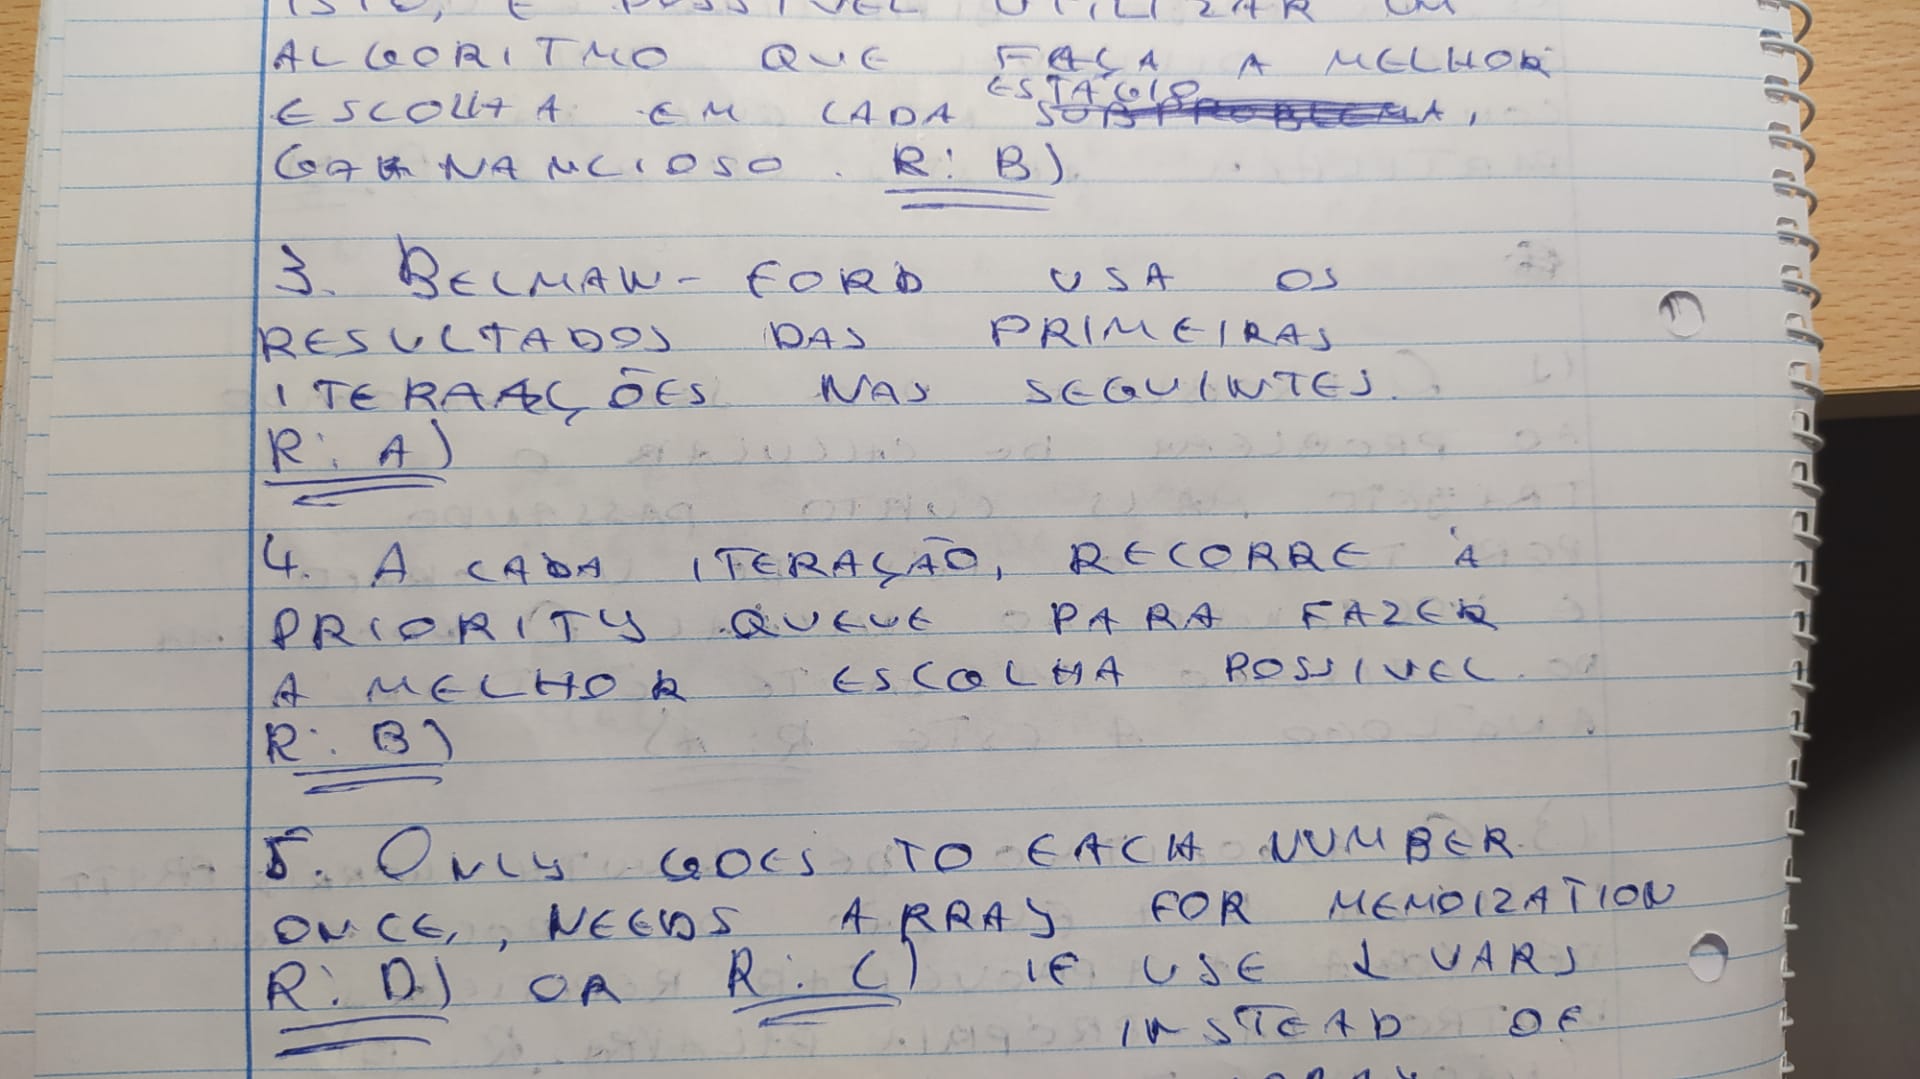 ISTO, É POSSÍVEL UTILIZAR UM
ALGORITMO QUE FAÇA A MELHOR
ESTÁGIO
ESCOLHA EM CADA SUBPROBLEMA,
GANANCIOSO. R: B)
3. BELMAN-FORD USA OS
RESULTADOS DAS PRIMEIRAS
ITERAÇÕES NAS SEGUINTES.
R: A)
4. A CADA ITERAÇÃO, RECORRE À
PRIORITY QUEUE PARA FAZER
A MELHOR ESCOLHA POSSIVEL.
R: B)
5. ONLY GOES TO EACH NUMBER
ONCE, NEEDS ARRAY FOR MEMOIZATION
R: D) OR R: C) IF USE 2 VARS
INSTEAD OF
ARRAY